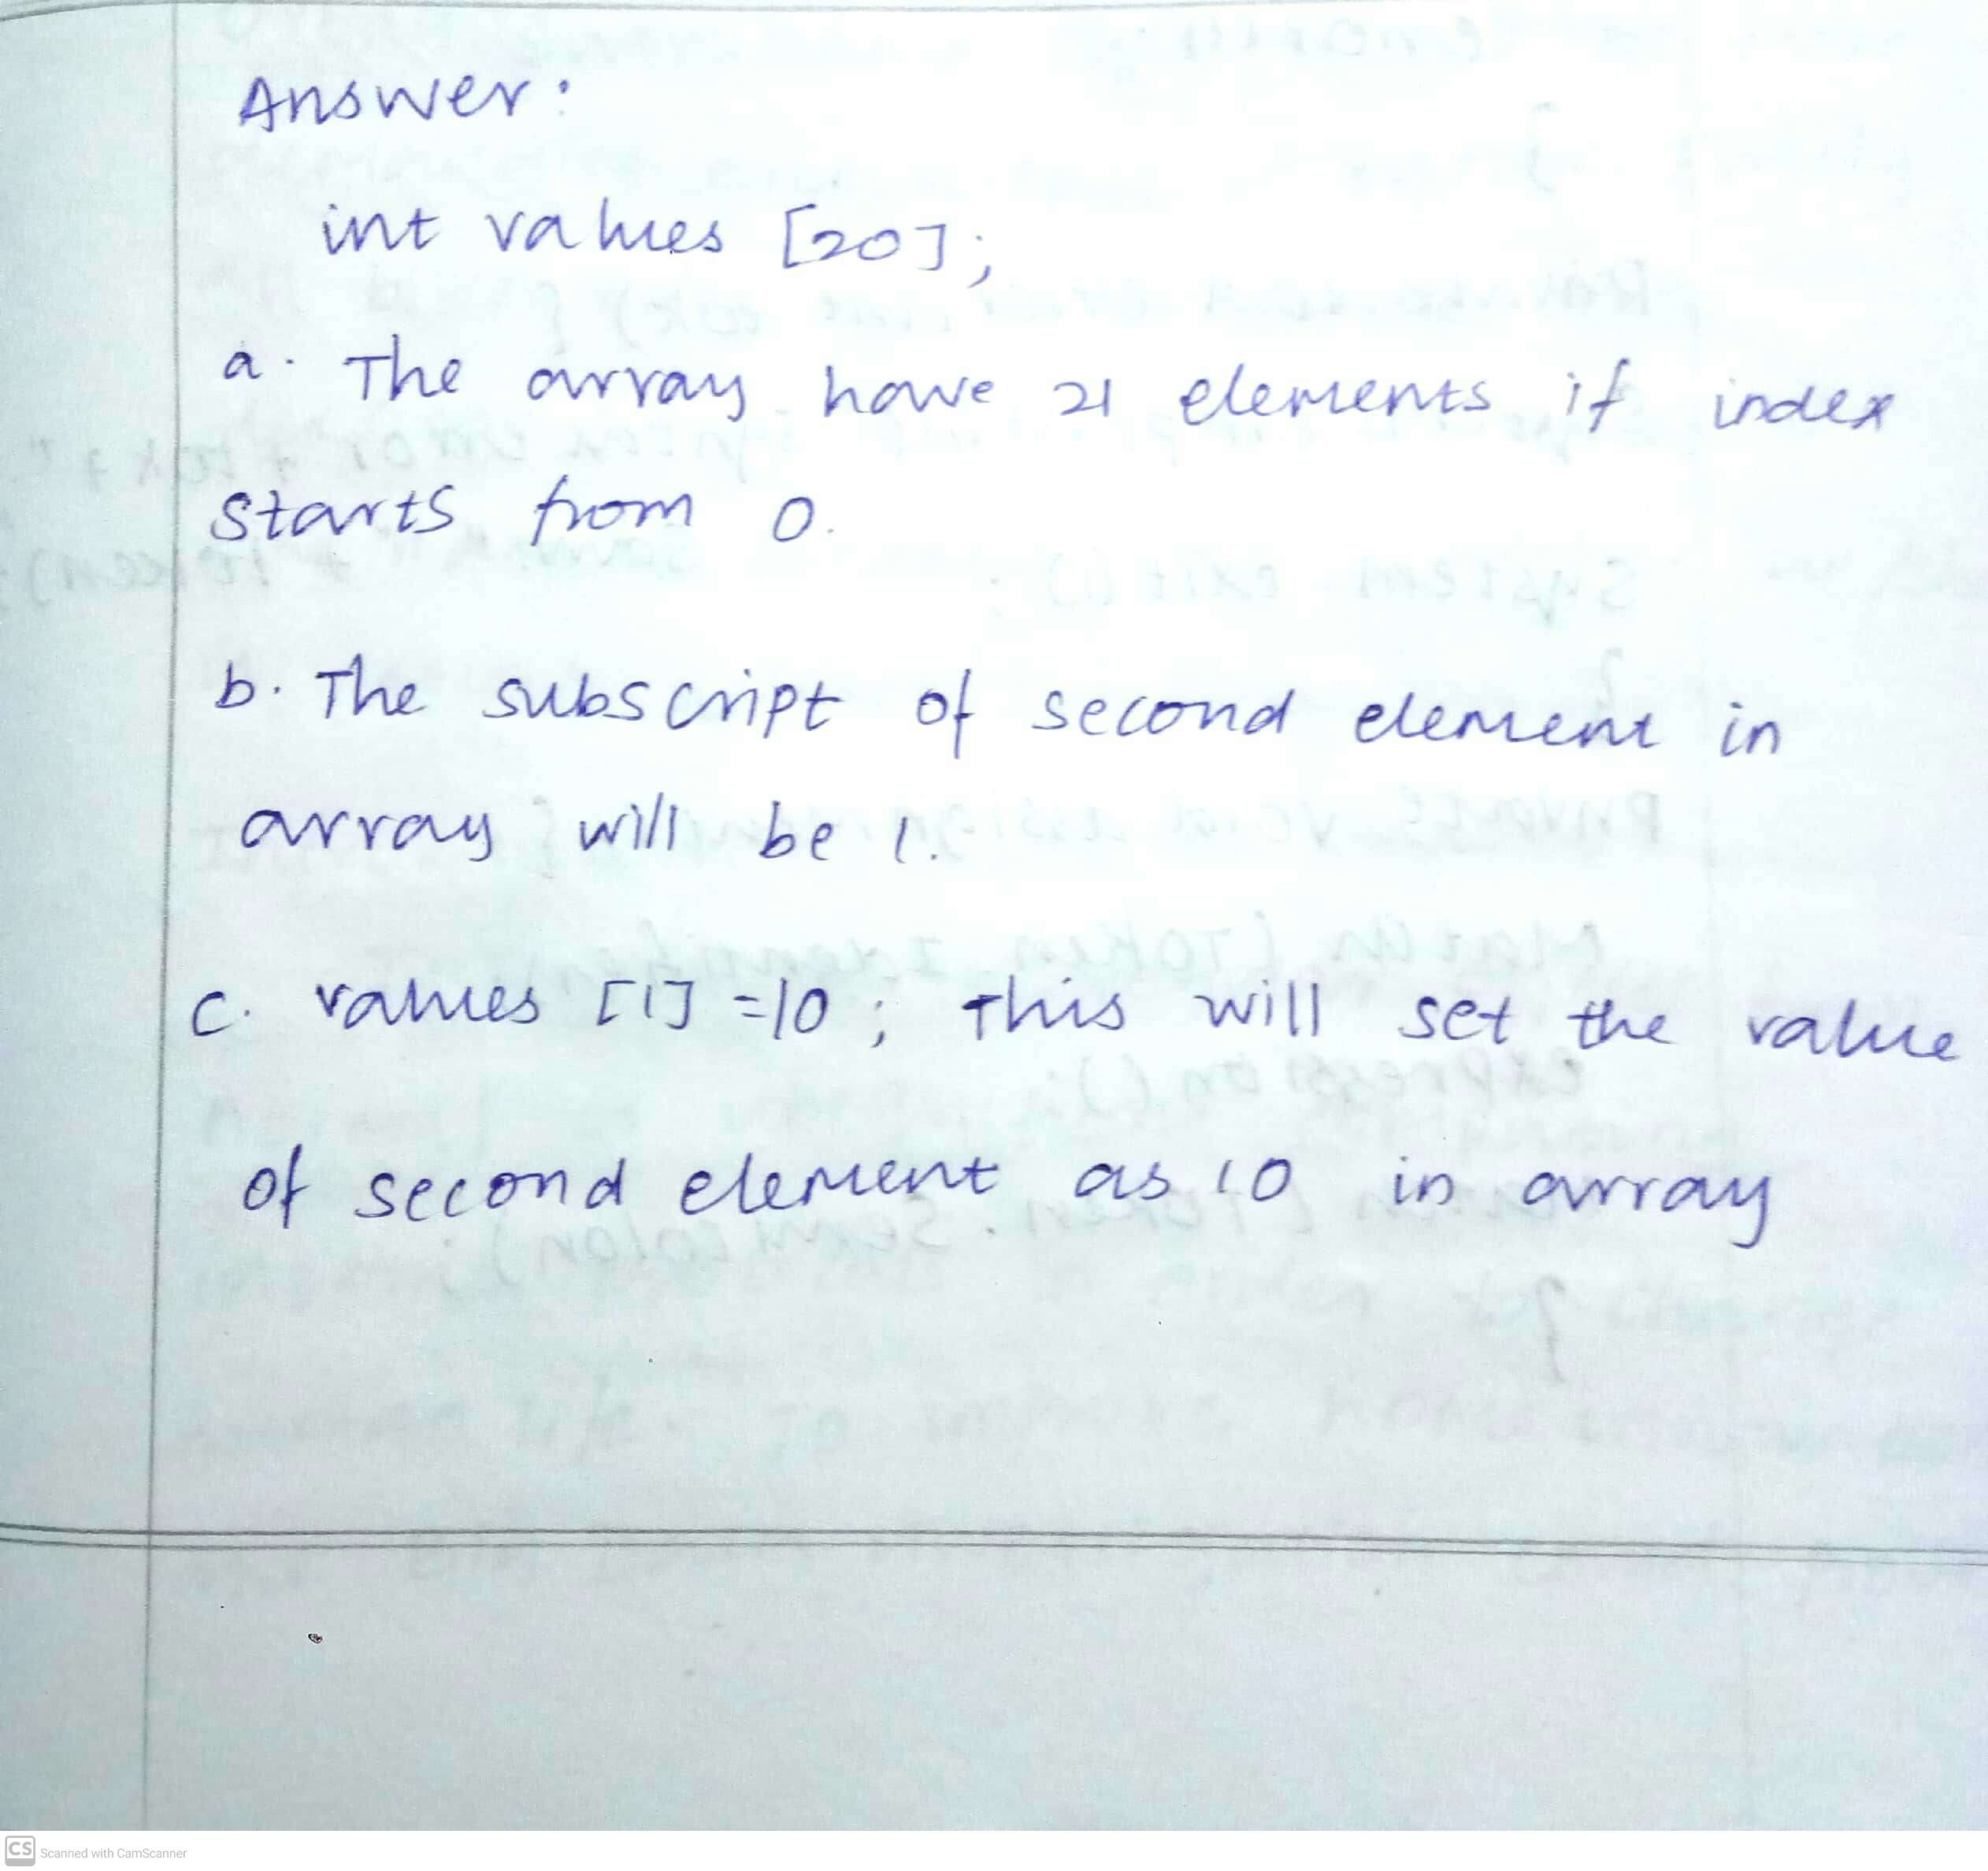 Answer:
int values [20];
a. The array have 21 elements if index
starts from 0.
b. The subscript of second element in
array will be 1.
c. values [1] =10; This will set the value
of second element as 10 in array
CS Scanned with CamScanner